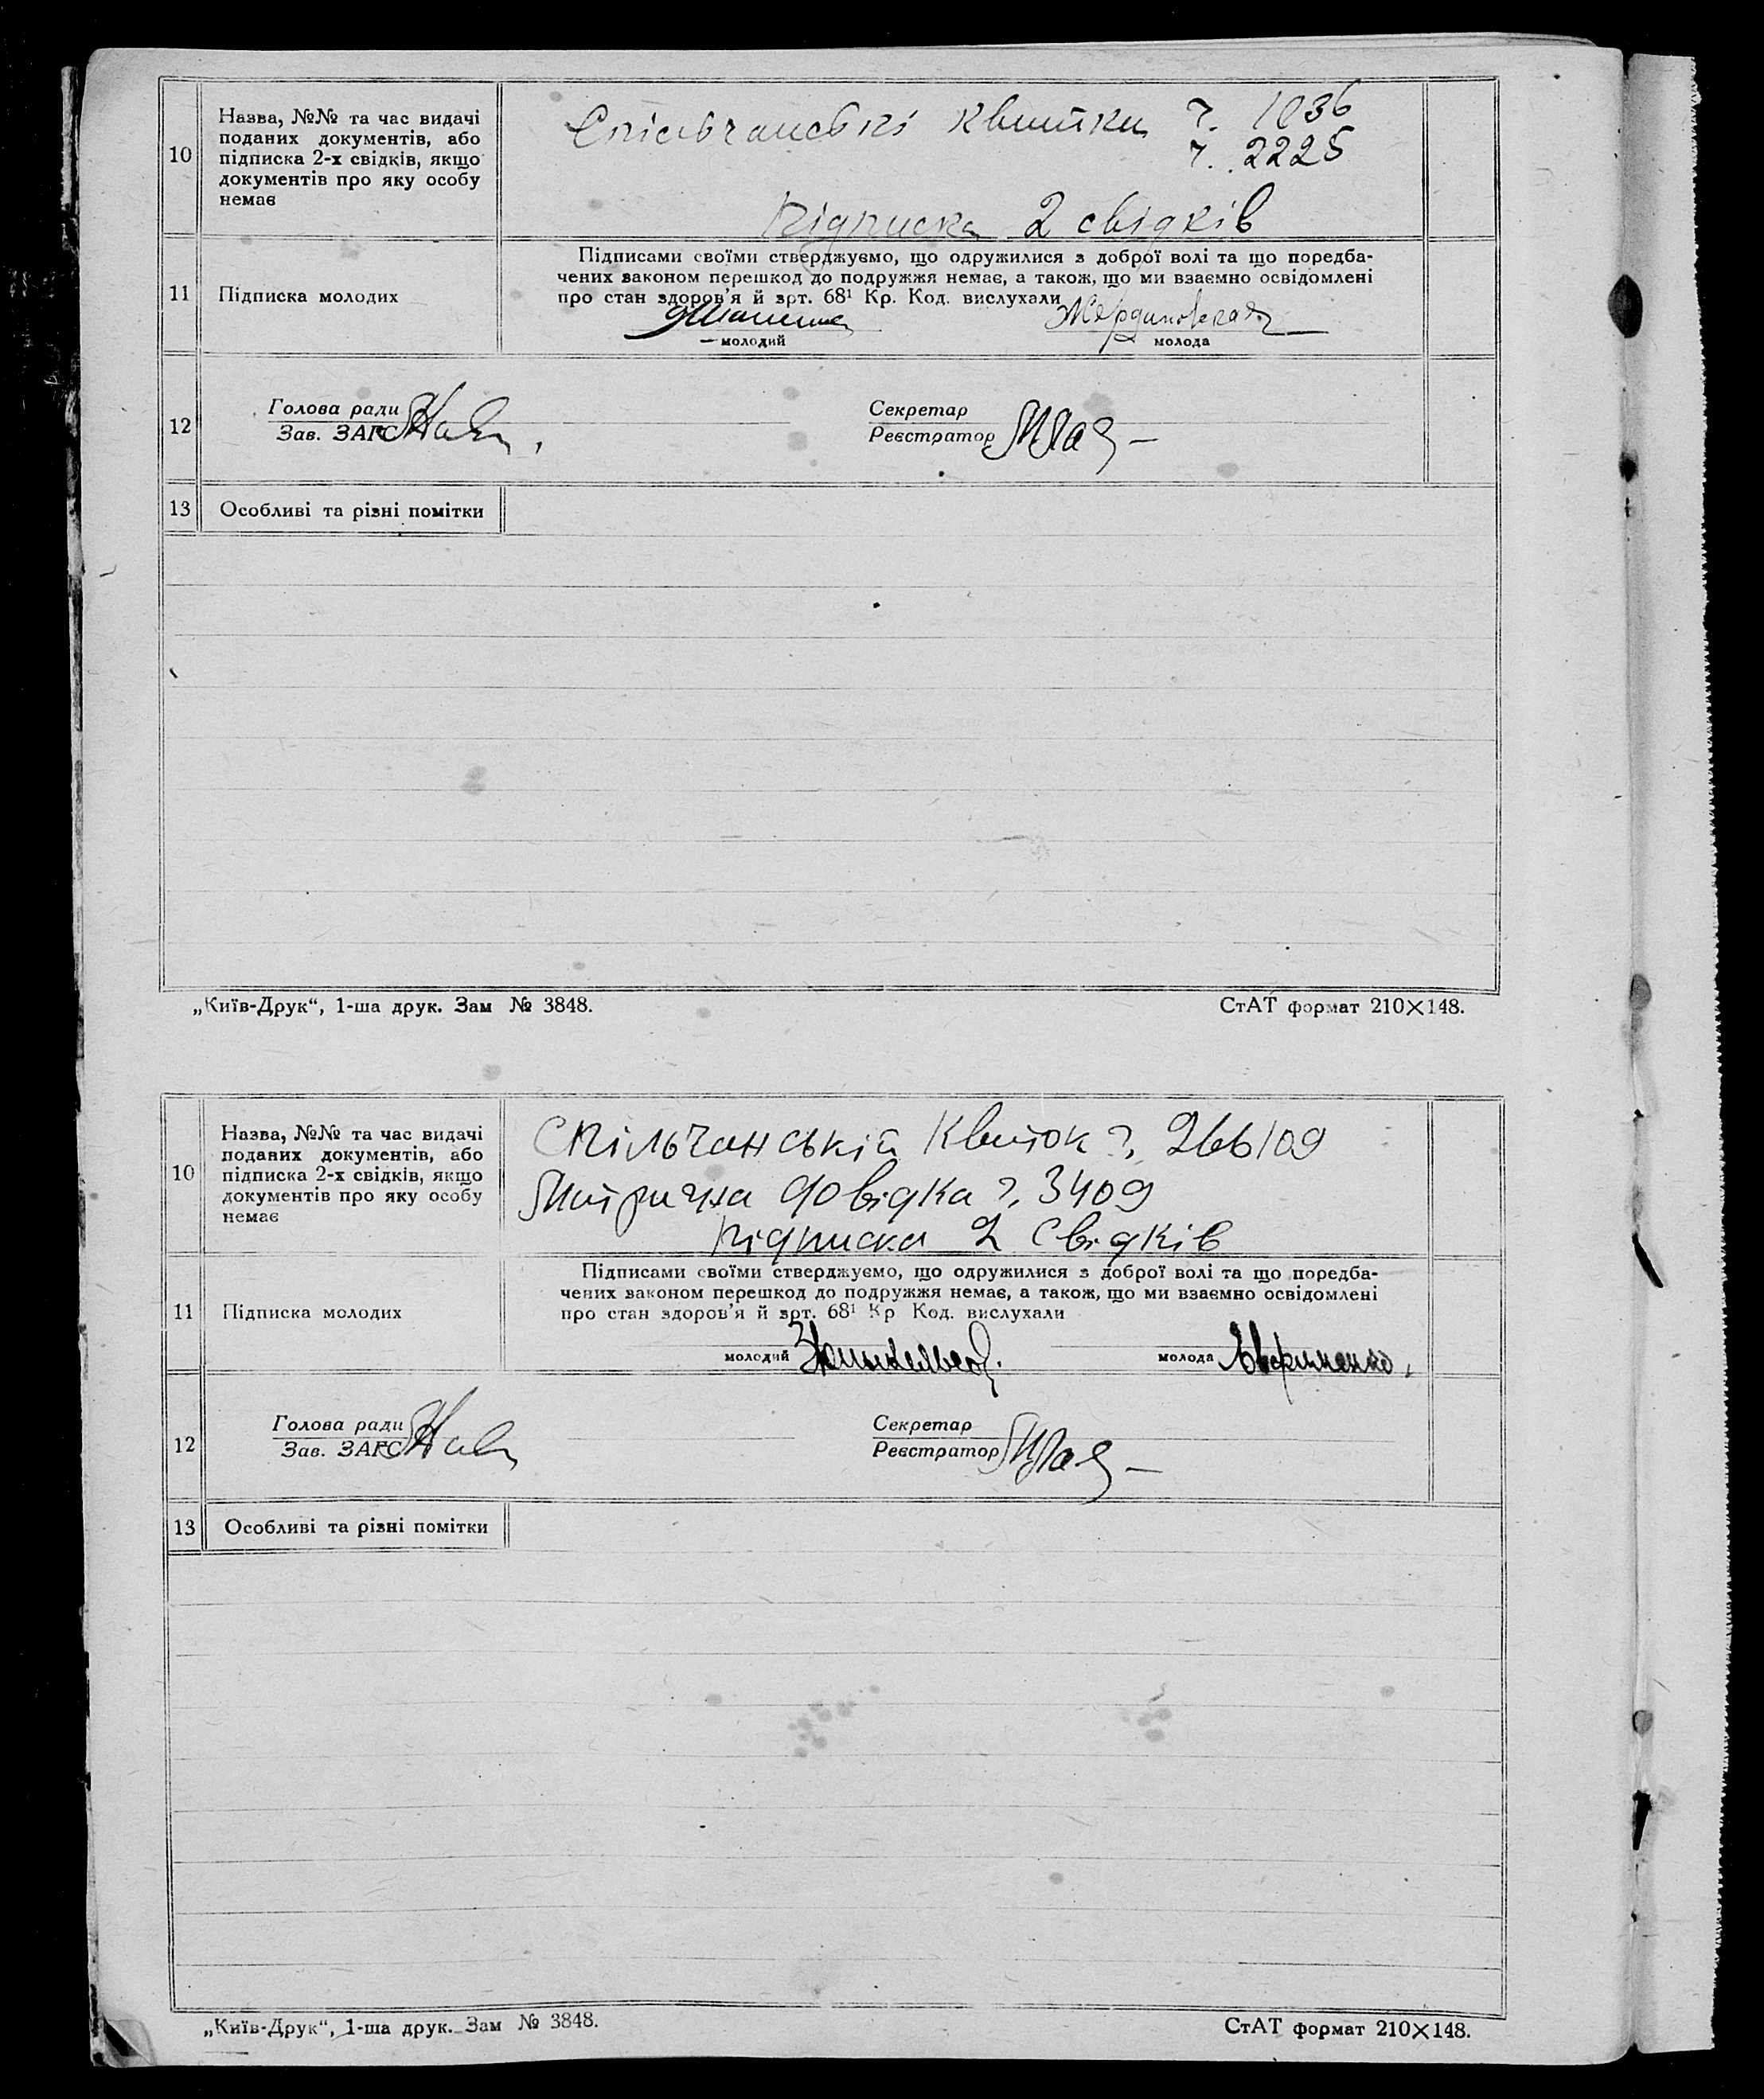 10
Назва, №№ та час видачі
поданих документів, або
підписка 2-х свідків, якщо
документів про яку особу
немає
Спільчанські квитки ч. 1036
ч. 2225
підписка 2 свідків
11
Підписка молодих
Підписами своїми стверджуємо, що одружилися з доброї волі та що поредба-
чених законом перешкод до подружжя немає, а також, що ми взаємно освідомлені
про стан здоров'я й арт. 68¹ Кр. Код. вислухали
молодий
молода
12
Голова ради
Зав. ЗАГС
Секретар
Реєстратор
13
Особливі та різні помітки
„Київ-Друк“, 1-ша друк. Зам № 3848.
СтАТ формат 210×148.
10
Назва, №№ та час видачі
поданих документів, або
підписка 2-х свідків, якщо
документів про яку особу
немає
Спільчанській квиток ч. 266109
Митрична довідка ч. 3409
підписка 2 свідків
11
Підписка молодих
Підписами своїми стверджуємо, що одружилися з доброї волі та що поредба-
чених законом перешкод до подружжя немає, а також, що ми взаємно освідомлені
про стан здоров'я й арт. 68¹ Кр Код. вислухали
молодий
молода
12
Голова ради
Зав. ЗАГС
Секретар
Реєстратор
13
Особливі та різні помітки
„Київ-Друк“, 1-ша друк. Зам № 3848.
СтАТ формат 210×148.